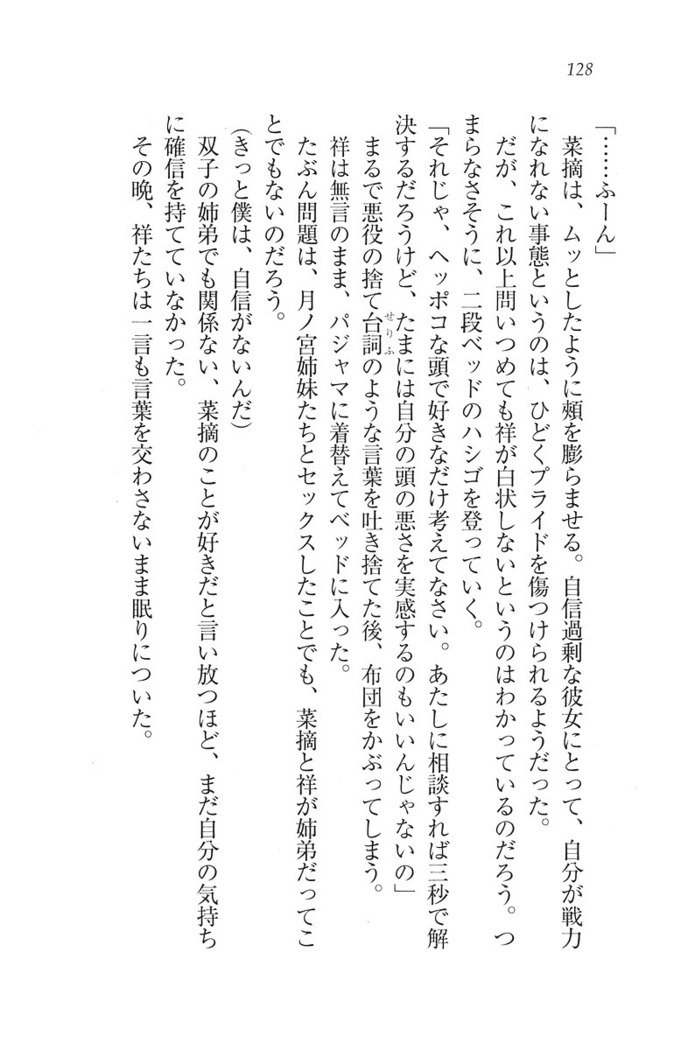 128
「……ふーん」
　菜摘は、ムッとしたように頰を膨らませる。自信過剰な彼女にとって、自分が戦力
になれない事態というのは、ひどくプライドを傷つけられるようだった。
　だが、これ以上問いつめても祥が白状しないというのはわかっているのだろう。つ
まらなさそうに、二段ベッドのハシゴを登っていく。
「それじゃ、ヘッポコな頭で好きなだけ考えてなさい。あたしに相談すれば三秒で解
決するだろうけど、たまには自分の頭の悪さを実感するのもいいんじゃないの」
　まるで悪役の捨て台詞のような言葉を吐き捨てた後、布団をかぶってしまう。
せりふ
　祥は無言のまま、パジャマに着替えてベッドに入った。
　たぶん問題は、月ノ宮姉妹たちとセックスしたことでも、菜摘と祥が姉弟だってこ
とでもないのだろう。
（きっと僕は、自信がないんだ）
　双子の姉弟でも関係ない、菜摘のことが好きだと言い放つほど、まだ自分の気持ち
に確信を持てていなかった。
　その晩、祥たちは一言も言葉を交わさないまま眠りについた。